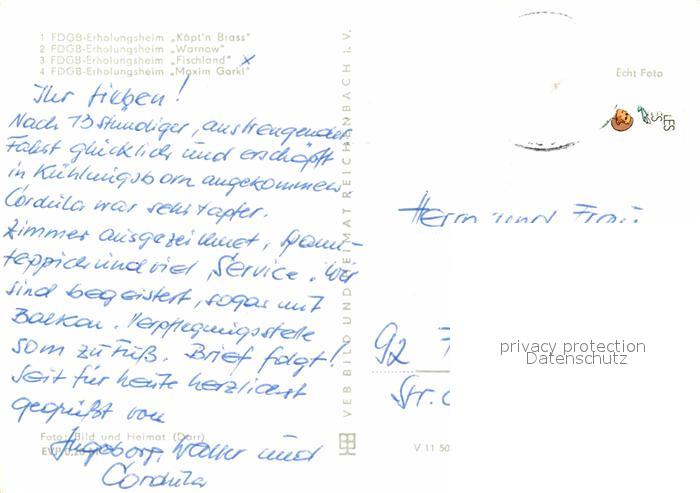 1 FDGB-Erholungsheim „Käpt'n Brass"
2 FDGB-Erholungsheim „Warnow"
3 FDGB-Erholungsheim „Fischland" x
4 FDGB-Erholungsheim „Maxim Gorki"
Ihr Lieben!
Nach 13stündiger, anstrengender
Fahrt glücklich und erschöpft
in Kühlungsborn angekommen.
Cordula war sehr tapfer.
Zimmer ausgezeichnet, Spann-
teppich und viel Service. Wir
sind begeistert, sogar mit
Balkon. Verpflegungsstelle
50m zu Fuß. Brief folgt!
Seit für heute herzlichst
gegrüßt von
Ingeborg, und
Cordula
Foto: Bild und Heimat (Darr)
EVP 0,20
VEB BILD UND HEIMAT REICHENBACH i. V.
V 11 50
Echt Foto
Herrn und Frau
92
Str.
privacy protection
Datenschutz